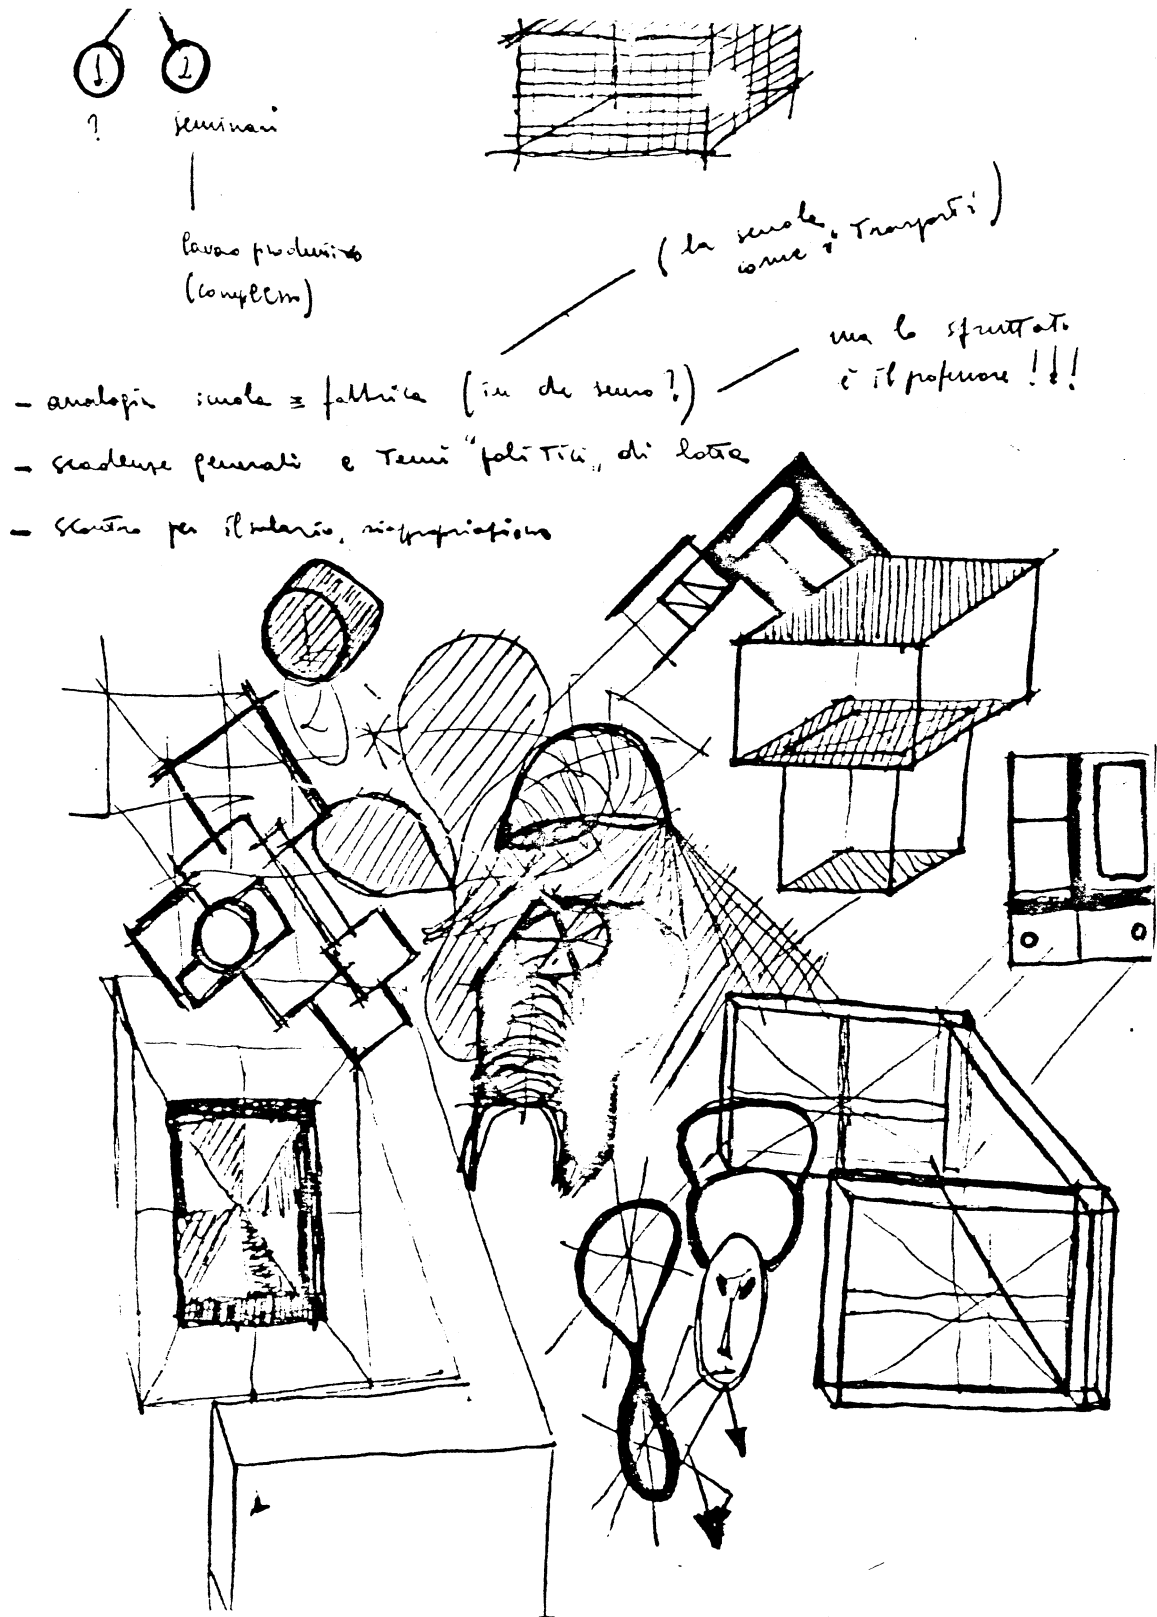 1 2
? seminari
lavoro produttivo
(complesso)
(la scuola
come i trasporti)
ma lo sfruttato
è il professore !!!
- analogia scuola = fabbrica (in che senso?)
- scadenze generali e temi "politici" di lotta
- scontro per il salario, riappropriazione
1
2